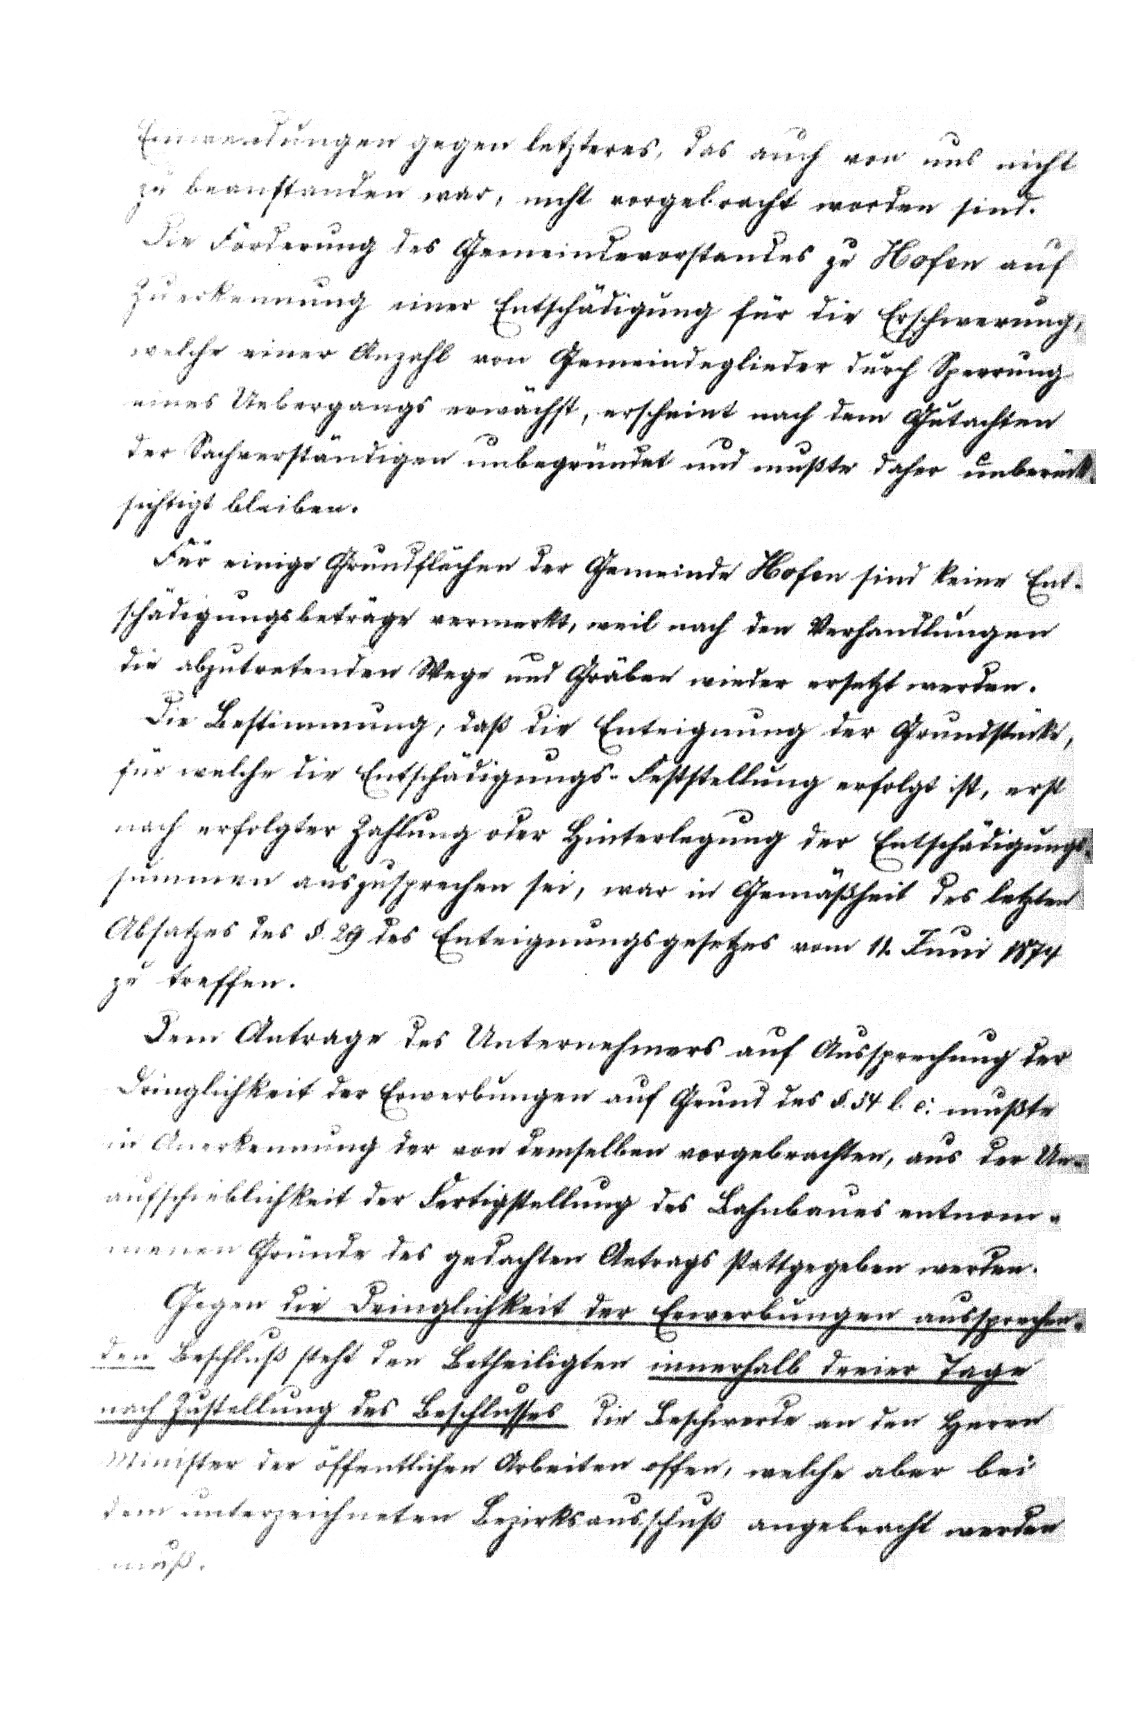 Einwendungen gegen letzteres, das auch von uns nicht
zu beanstanden war, nicht vorgebracht worden sind.
Die Forderung des Gemeindevorstandes zu Hofen auf
Zuerkennung einer Entschädigung für die Erschwerung,
welche einer Anzahl von Gemeindeglieder durch Sperrung
eines Uebergangs erwächst, erscheint nach dem Gutachten
der Sachverständigen unbegründet und mußte daher unberück-
sichtigt bleiben.
Für einige Grundflächen der Gemeinde Hofen sind keine Ent-
schädigungsbeträge vermerkt, weil nach den Verhandlungen
die abzutretenden Wege und Gräben wieder ersetzt werden.
Die Bestimmung, daß die Enteignung der Grundstücke,
für welche die Entschädigungs-Feststellung erfolgt ist, erst
nach erfolgter Zahlung oder Hinterlegung der Entschädigungs-
summen auszusprechen sei, war in Gemäßheit des letzten
Absatzes des §. 29 des Enteignungsgesetzes vom 11. Juni 1874
zu treffen.
Dem Antrage des Unternehmers auf Aussprechung der
Dringlichkeit der Erwerbungen auf Grund des §. 34 l. c. mußte
in Anerkennung der von demselben vorgebrachten, aus der Un-
aufschieblichkeit der Fertigstellung des Bahnbaues entnom-
menen Gründe des gedachten Antrags stattgegeben werden.
Gegen die Dringlichkeit der Erwerbungen aussprechen-
den Beschluß steht den Betheiligten innerhalb dreier Tage
nach Zustellung des Beschlusses die Beschwerde an den Herrn
Minister der öffentlichen Arbeiten offen, welche aber bei
dem unterzeichneten Bezirksausschuß angebracht werden
muß.